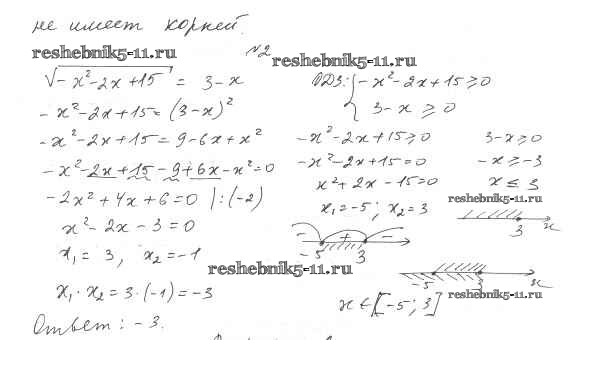 не имеет корней.
reshebnik5-11.ru
№2
reshebnik5-11.ru
√-x²-2x+15 = 3-x
-x²-2x+15=(3-x)²
-x²-2x+15=9-6x+x²
-x²-2x+15-9+6x-x²=0
-2x²+4x+6=0 |:(-2)
x²-2x-3=0
x₁=3, x₂=-1
x₁·x₂=3·(-1)=-3
Ответ: -3.
ОДЗ: { -x²-2x+15≥0
3-x≥0
-x²-2x+15≥0
-x²-2x+15=0
x²+2x-15=0
x₁=-5; x₂=3
- + -
-5 3
reshebnik5-11.ru
3-x≥0
-x≥-3
x≤3
reshebnik5-11.ru
3 x
-5 3 x
reshebnik5-11.ru
x∈[-5;3]